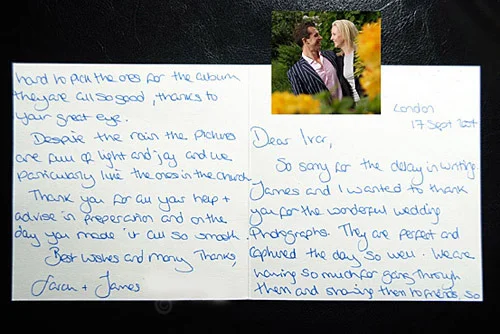 London
17 Sept
Dear Ivar,
So sorry for the delay in writing.
James and I wanted to thank
you for the wonderful wedding
Photographs. They are perfect and
captured the day so well. We are
having so much fun going through
them and showing them to friends, so
hard to pick the ones for the album
they are all so good, thanks to
your great eye.
Despite the rain the pictures
are full of light and joy and we
particularly like the ones in the church.
Thank you for all your help +
advise in preperation and on the
day you made it all so smooth.
Best wishes and many thanks,
Sarah + James